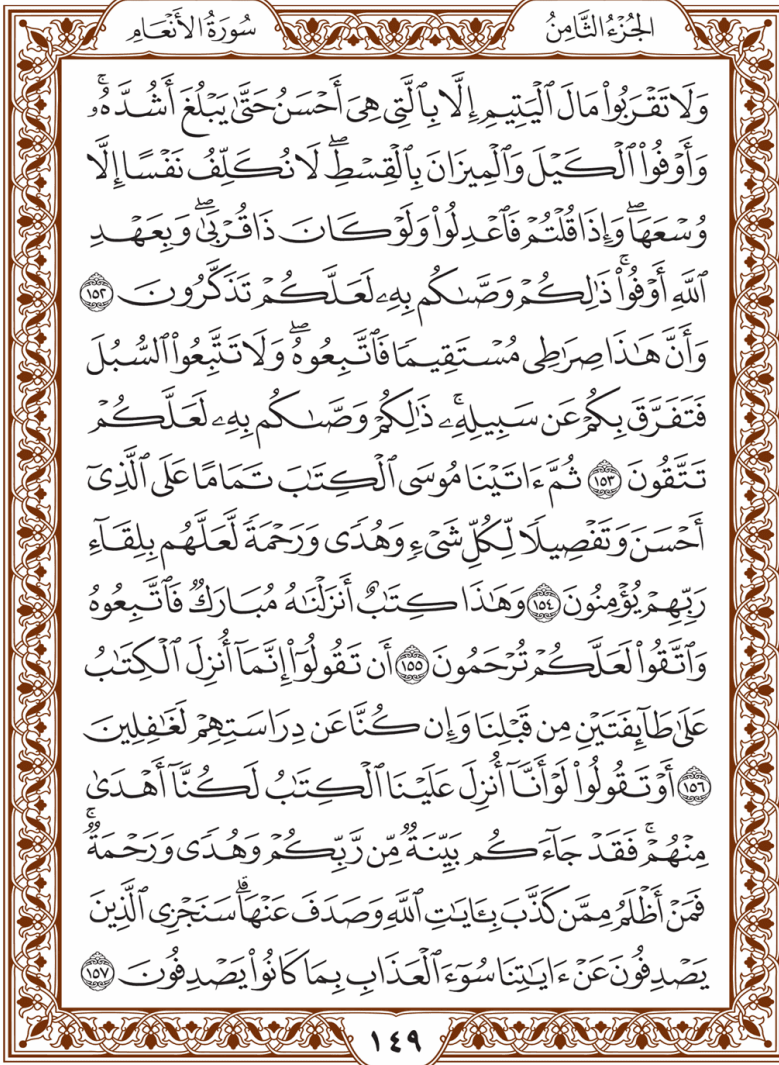 الجُزْءُ الثَّامِنُ
سُورَةُ الأَنْعَامِ
وَلَا تَقْرَبُواْ مَالَ ٱلْيَتِيمِ إِلَّا بِٱلَّتِي هِيَ أَحْسَنُ حَتَّىٰ يَبْلُغَ أَشُدَّهُۥۚ
وَأَوْفُواْ ٱلْكَيْلَ وَٱلْمِيزَانَ بِٱلْقِسْطِۖ لَا نُكَلِّفُ نَفْسًا إِلَّا
وُسْعَهَاۖ وَإِذَا قُلْتُمْ فَٱعْدِلُواْ وَلَوْ كَانَ ذَا قُرْبَىٰۖ وَبِعَهْدِ
ٱللَّهِ أَوْفُواْۚ ذَٰلِكُمْ وَصَّىٰكُم بِهِۦ لَعَلَّكُمْ تَذَكَّرُونَ ١٥٢
وَأَنَّ هَٰذَا صِرَٰطِي مُسْتَقِيمًا فَٱتَّبِعُوهُۖ وَلَا تَتَّبِعُواْ ٱلسُّبُلَ
فَتَفَرَّقَ بِكُمْ عَن سَبِيلِهِۦۚ ذَٰلِكُمْ وَصَّىٰكُم بِهِۦ لَعَلَّكُمْ
تَتَّقُونَ ١٥٣ ثُمَّ ءَاتَيْنَا مُوسَى ٱلْكِتَٰبَ تَمَامًا عَلَى ٱلَّذِيٓ
أَحْسَنَ وَتَفْصِيلًا لِّكُلِّ شَيْءٍ وَهُدًى وَرَحْمَةً لَّعَلَّهُم بِلِقَآءِ
رَبِّهِمْ يُؤْمِنُونَ ١٥٤ وَهَٰذَا كِتَٰبٌ أَنزَلْنَٰهُ مُبَارَكٌ فَٱتَّبِعُوهُ
وَٱتَّقُواْ لَعَلَّكُمْ تُرْحَمُونَ ١٥٥ أَن تَقُولُوٓاْ إِنَّمَآ أُنزِلَ ٱلْكِتَٰبُ
عَلَىٰ طَآئِفَتَيْنِ مِن قَبْلِنَا وَإِن كُنَّا عَن دِرَاسَتِهِمْ لَغَٰفِلِينَ
١٥٦ أَوْ تَقُولُواْ لَوْ أَنَّآ أُنزِلَ عَلَيْنَا ٱلْكِتَٰبُ لَكُنَّآ أَهْدَىٰ
مِنْهُمْۚ فَقَدْ جَآءَكُم بَيِّنَةٌ مِّن رَّبِّكُمْ وَهُدًى وَرَحْمَةٌۚ
فَمَنْ أَظْلَمُ مِمَّن كَذَّبَ بِـَٔايَٰتِ ٱللَّهِ وَصَدَفَ عَنْهَاۗ سَنَجْزِي ٱلَّذِينَ
يَصْدِفُونَ عَنْ ءَايَٰتِنَا سُوٓءَ ٱلْعَذَابِ بِمَا كَانُواْ يَصْدِفُونَ ١٥٧
١٤٩